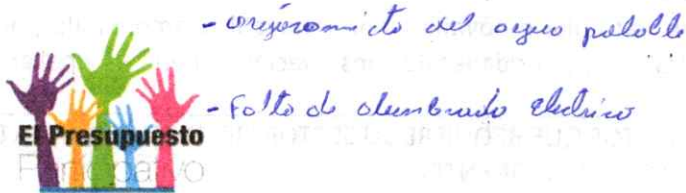 - mejoramicto del agua potable
- Falta de alumbrado electrico
El Presupuesto
Participativo